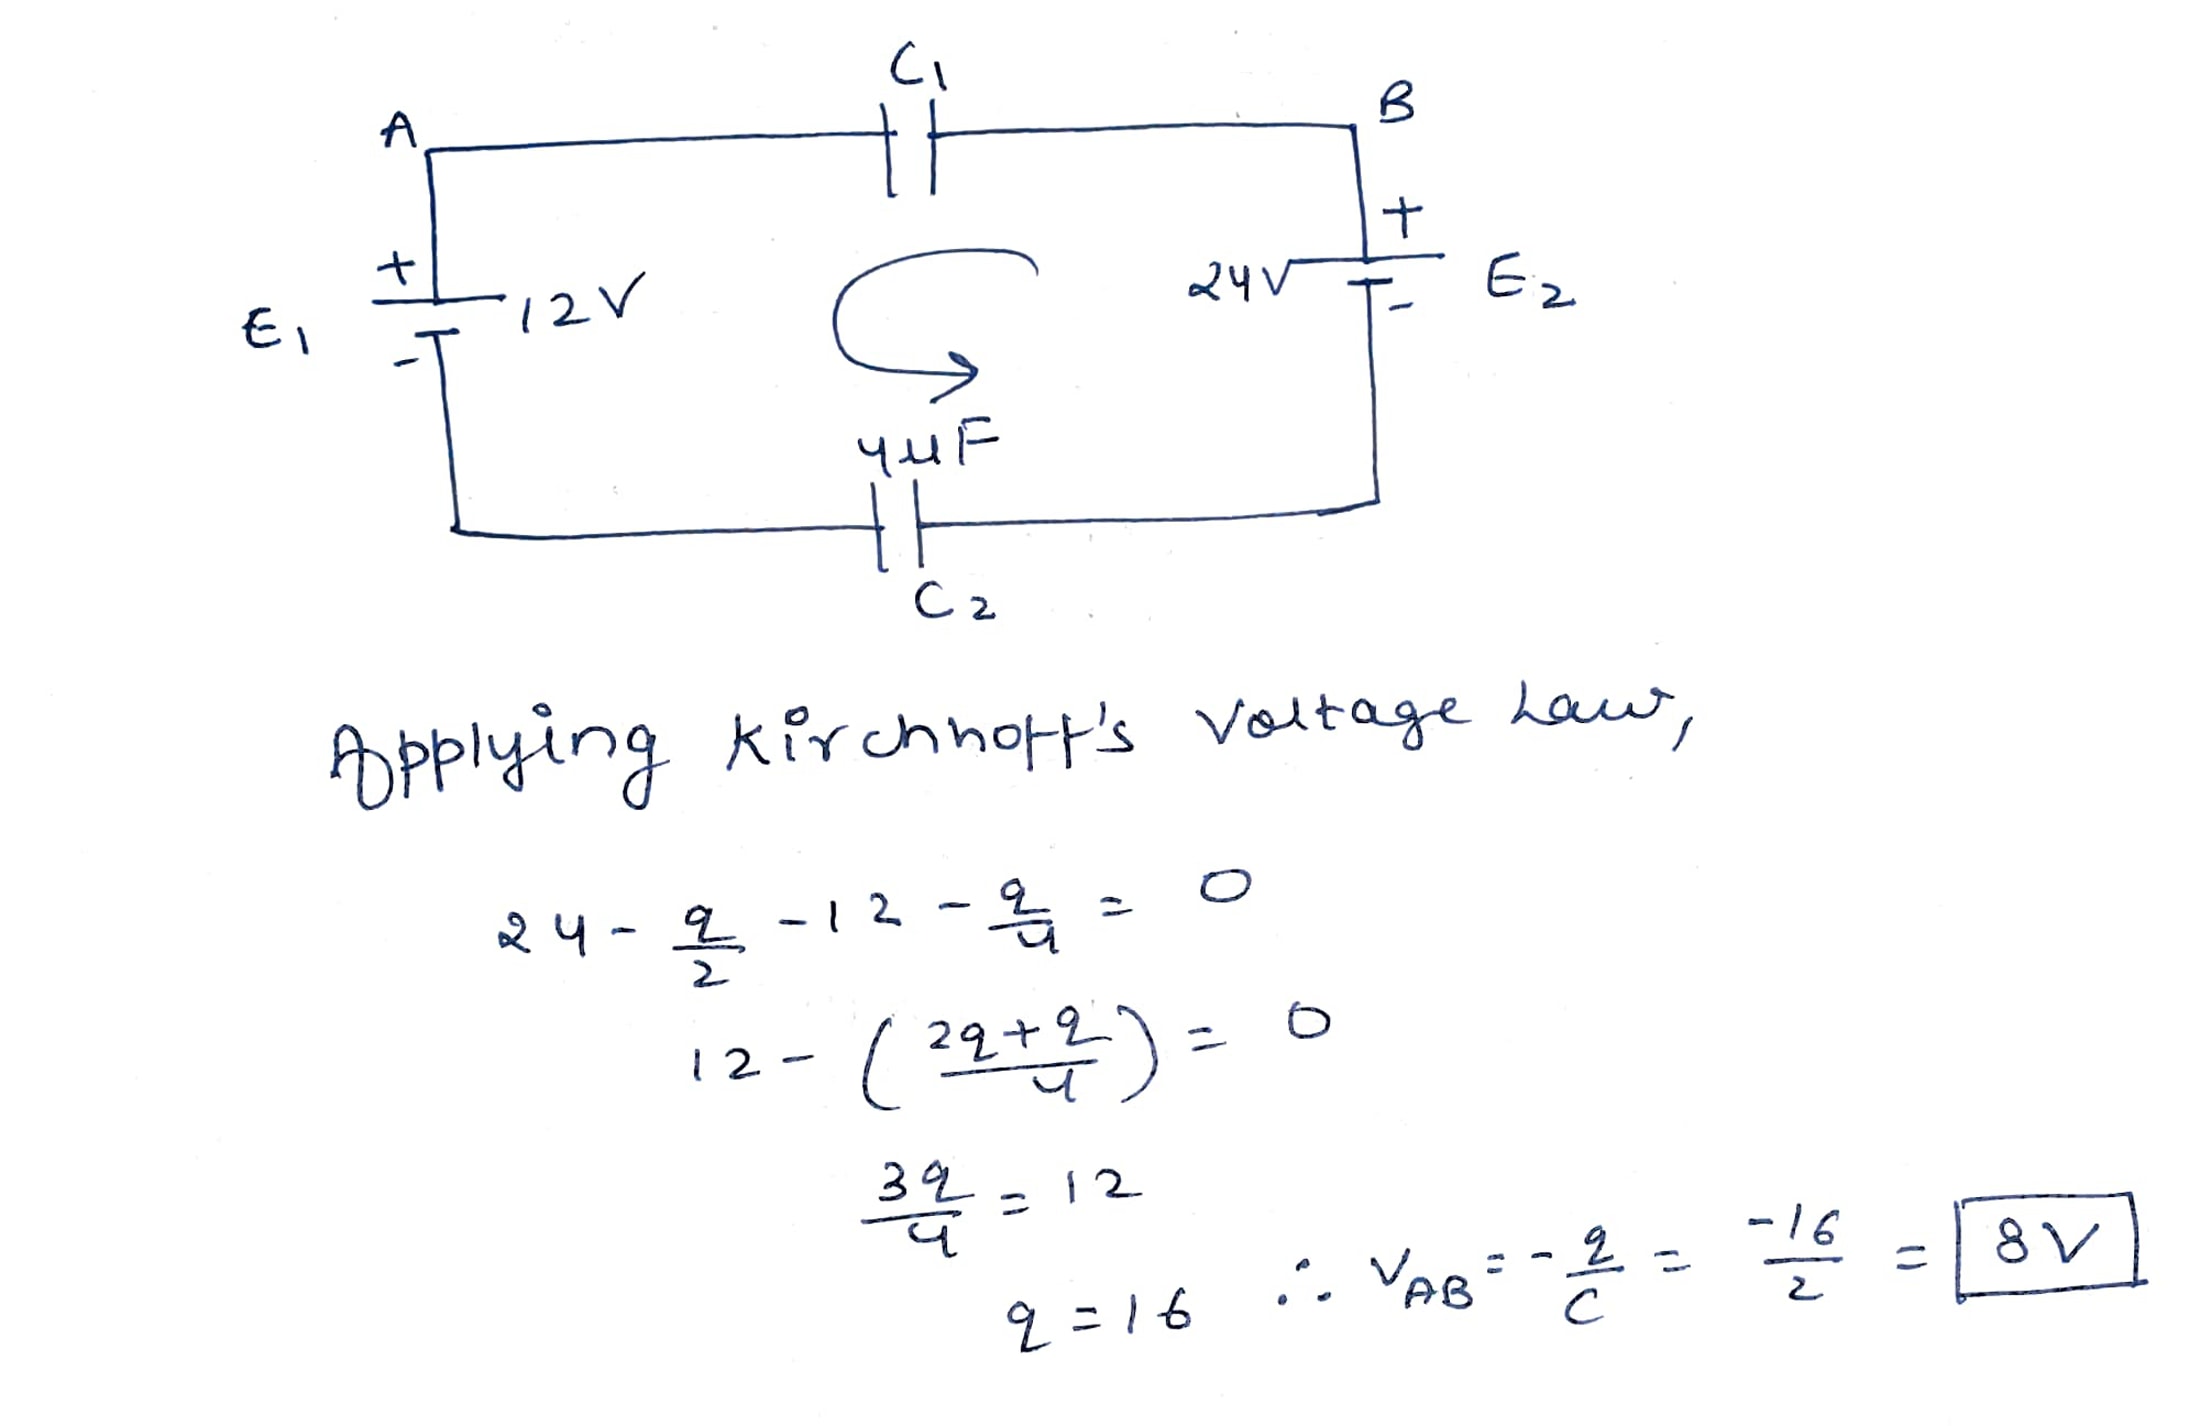 C1
A B
+ +
E1 12V 24V E2
- -
4μF
C2
Applying Kirchhoff's Voltage Law,
24 - q/2 - 12 - q/4 = 0
12 - (2q+q/4) = 0
3q/4 = 12
q = 16 ∴ VAB = - q/C = -16/2 = 8V